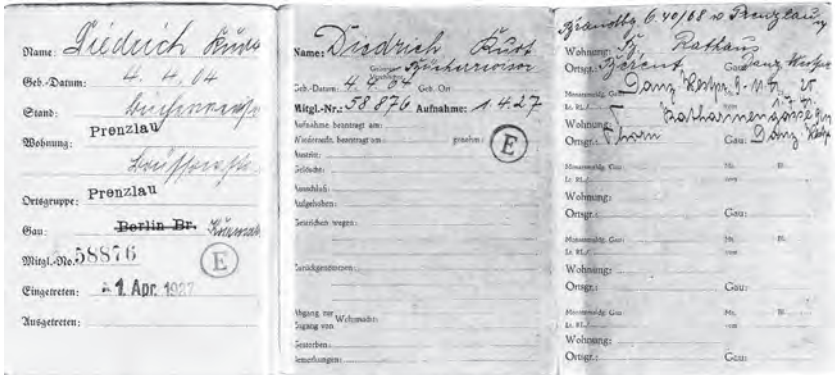 Name: Diedrich Kurt
Geb.-Datum: 4. 4. 04
Stand:
Wohnung: Prenzlau
Ortsgruppe: Prenzlau
Gau: Berlin Br.
Mitgl.-No. 58876
E
Eingetreten: 1. Apr. 1927
Ausgetreten:
Name: Diedrich Kurt
Bücherrevisor
Geb.-Datum: 4. 4. 04 Geb. Ort
Mitgl.-Nr.: 58 876 Aufnahme: 1.4.27
Aufnahme beantragt am:
Wiederaufn. beantragt am: genehm.:
E
Austritt:
Gelöscht:
Ausschluß:
Aufgehoben:
Gestrichen wegen:
Zurückgenommen:
Abgang zur Wehrmacht:
Zugang von
Gestorben:
Bemerkungen:
Brandbg 6.40/68 v. Prenzlau
Wohnung: Rathaus
Ortsgr.: Berent Gau: Danz Westpr
Monatsmeldg. Gau: Danz Westpr.
Lt. RL./ vom
Wohnung: Katharinengasse
Ortsgr.: Thorn Gau: Danz. Westp
Monatsmeldg. Gau: Mt. Bl.
Lt. RL./ vom
Wohnung:
Ortsgr.: Gau:
Monatsmeldg. Gau: Mt. Bl.
Lt. RL./ vom
Wohnung:
Ortsgr.: Gau:
Monatsmeldg. Gau: Mt. Bl.
Lt. RL./ vom
Wohnung:
Ortsgr.: Gau: